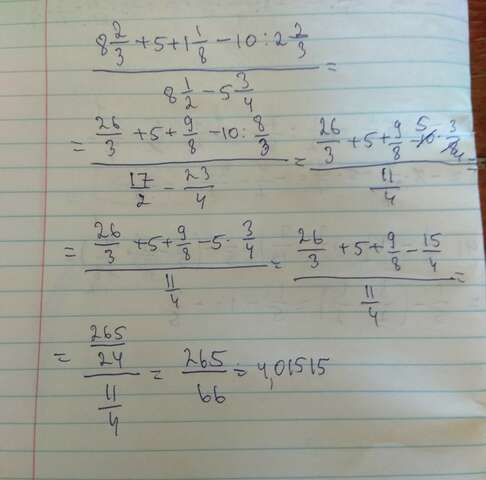 (8 2/3 + 5 + 1 1/8 - 10 : 2 2/3) / (8 1/2 - 5 3/4) =
= (26/3 + 5 + 9/8 - 10 : 8/3) / (17/2 - 23/4) = (26/3 + 5 + 9/8 - 10 5 · 3/8 4) / (11/4) =
= (26/3 + 5 + 9/8 - 5 · 3/4) / (11/4) = (26/3 + 5 + 9/8 - 15/4) / (11/4) =
= (265/24) / (11/4) = 265/66 = 4,01515